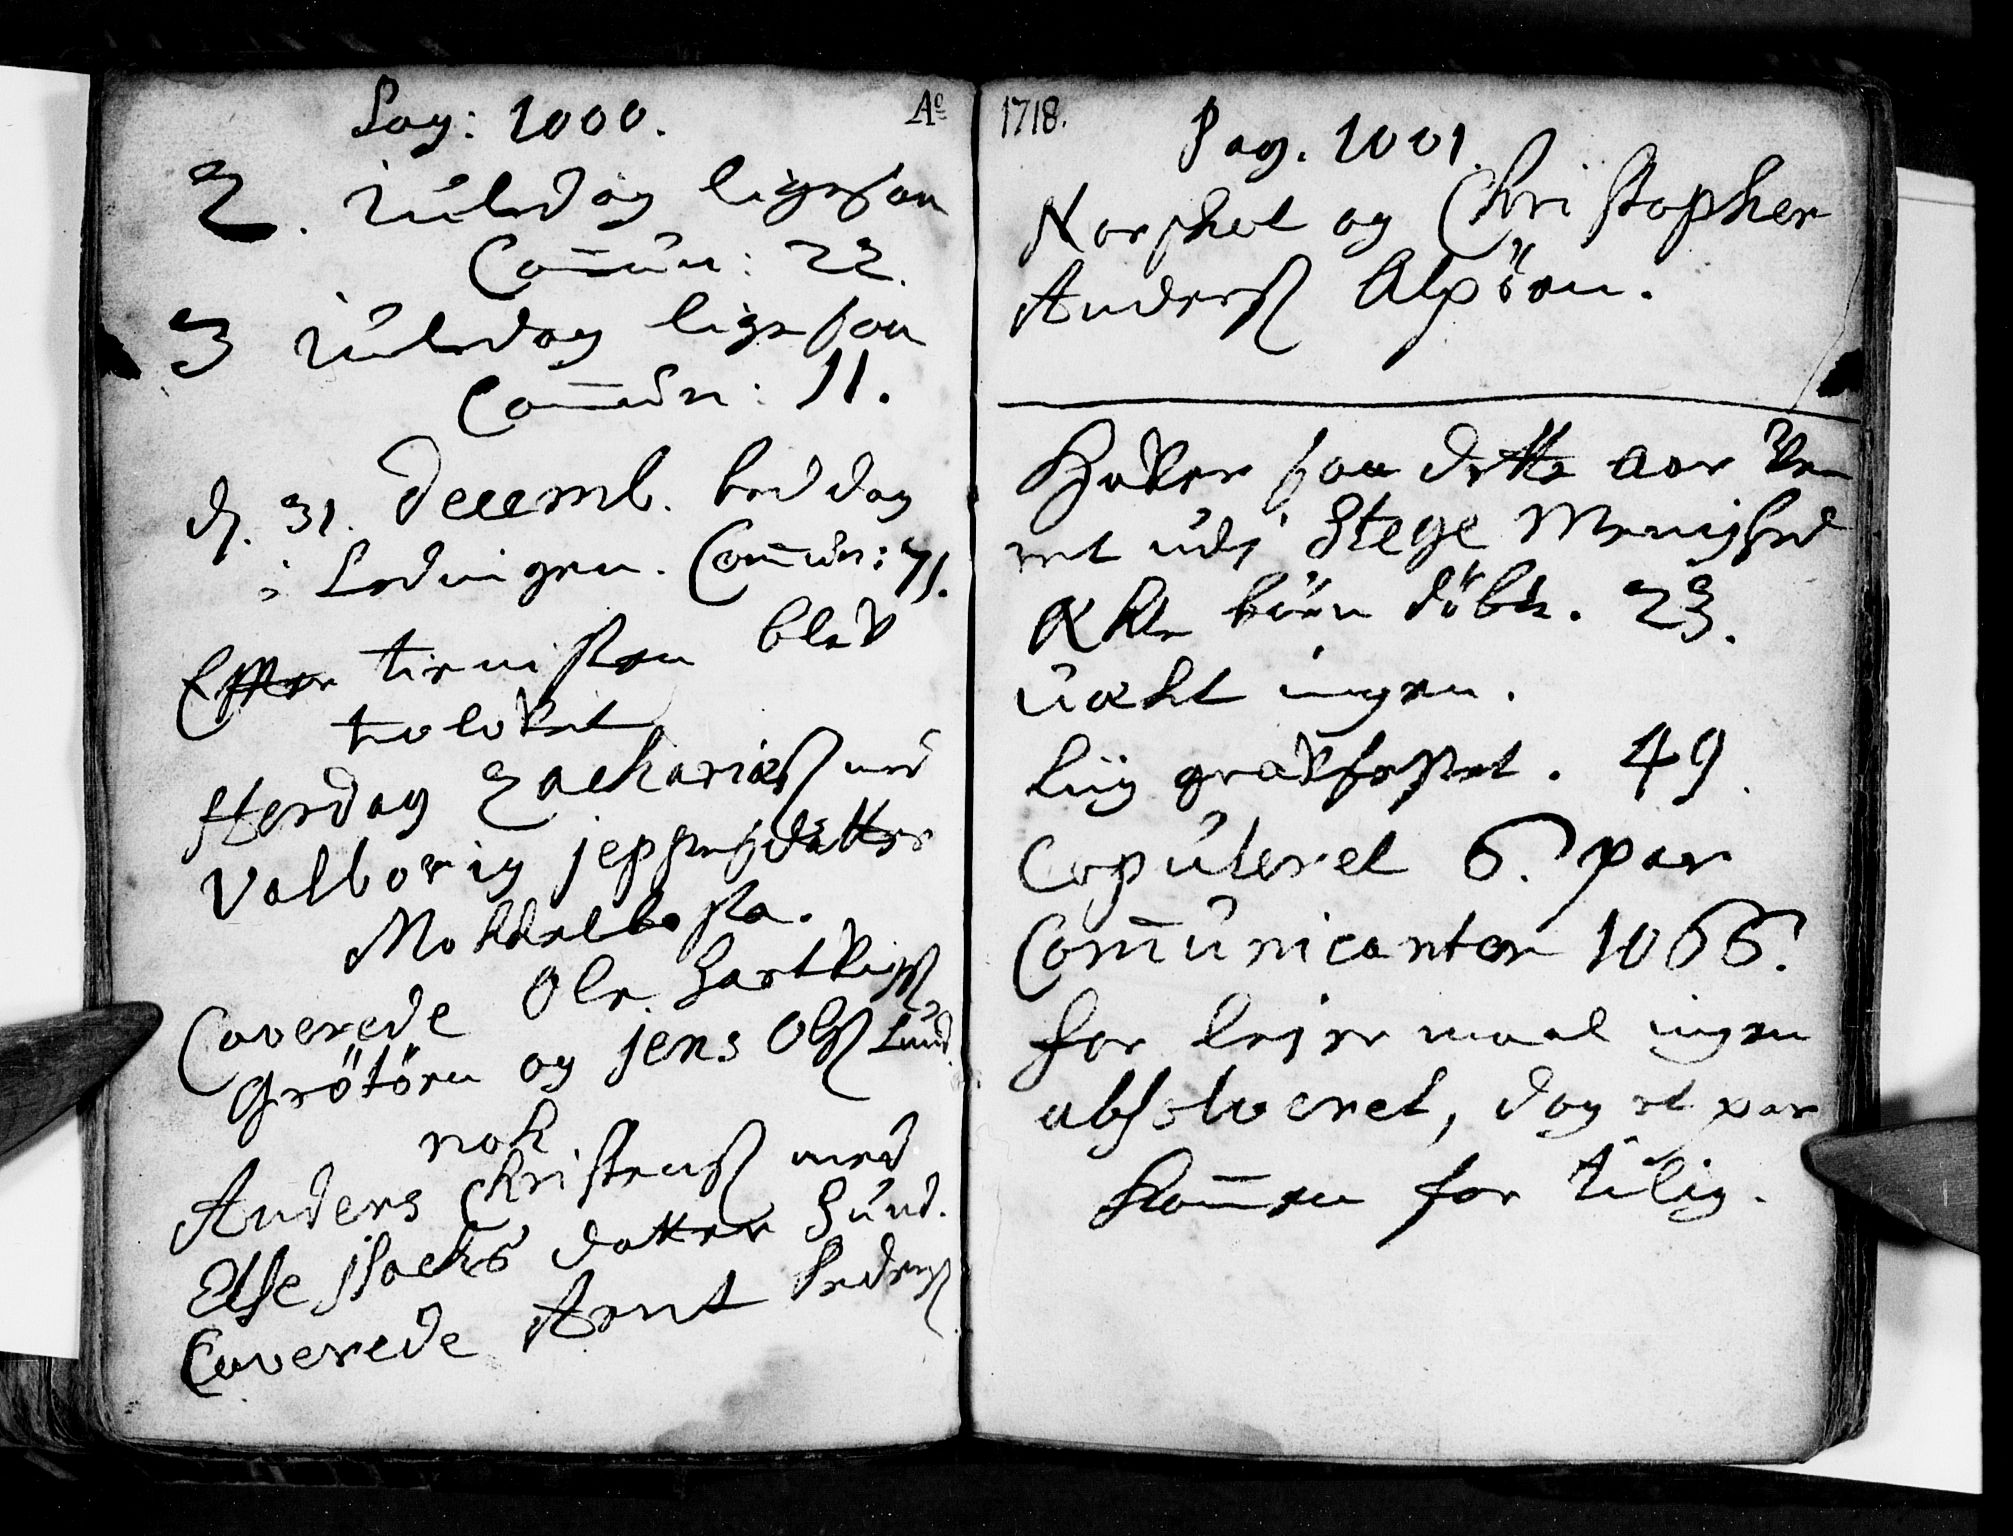 Pag: 1000.
Aº
2. Juledag ligesaa
Com̅un: 22.
3 Juledag ligesaa
Com̅un: 11.
d. 31. Decemb. beddag
i Lødingen. Com̅un: 71.
Effter tienisten blev
trolovet
Herdag Zachariæß med
Valborig jeppesdatter
Caverede Ole Hartvigß
Grötöen og jens Olß Lund.
nok
Anders Christensß med
Else jsachs datter Sund.
Caverede Arnt Pederß
1718.
Pag. 1001.
Norshol og Christopher
Andersß Alpöen.
Haver saa dette aar ve
ret udj Stege Menighed
Ækte börn döbte. 23.
uækt ingen.
Liig gravfæstet. 49.
Copuleret 6. par
Com̅unicanter 1066.
for lejermaal ingen
absolveret, dog et par
kom̅en for tilig.